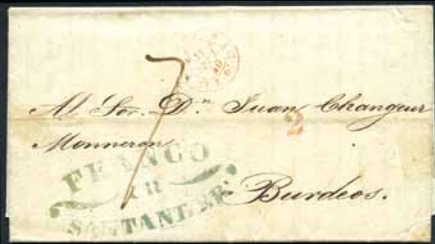 7
Al Sor. Dn. Juan Changeur
2
Monneron
FRANCO
EN
SANTANDER
Burdeos.